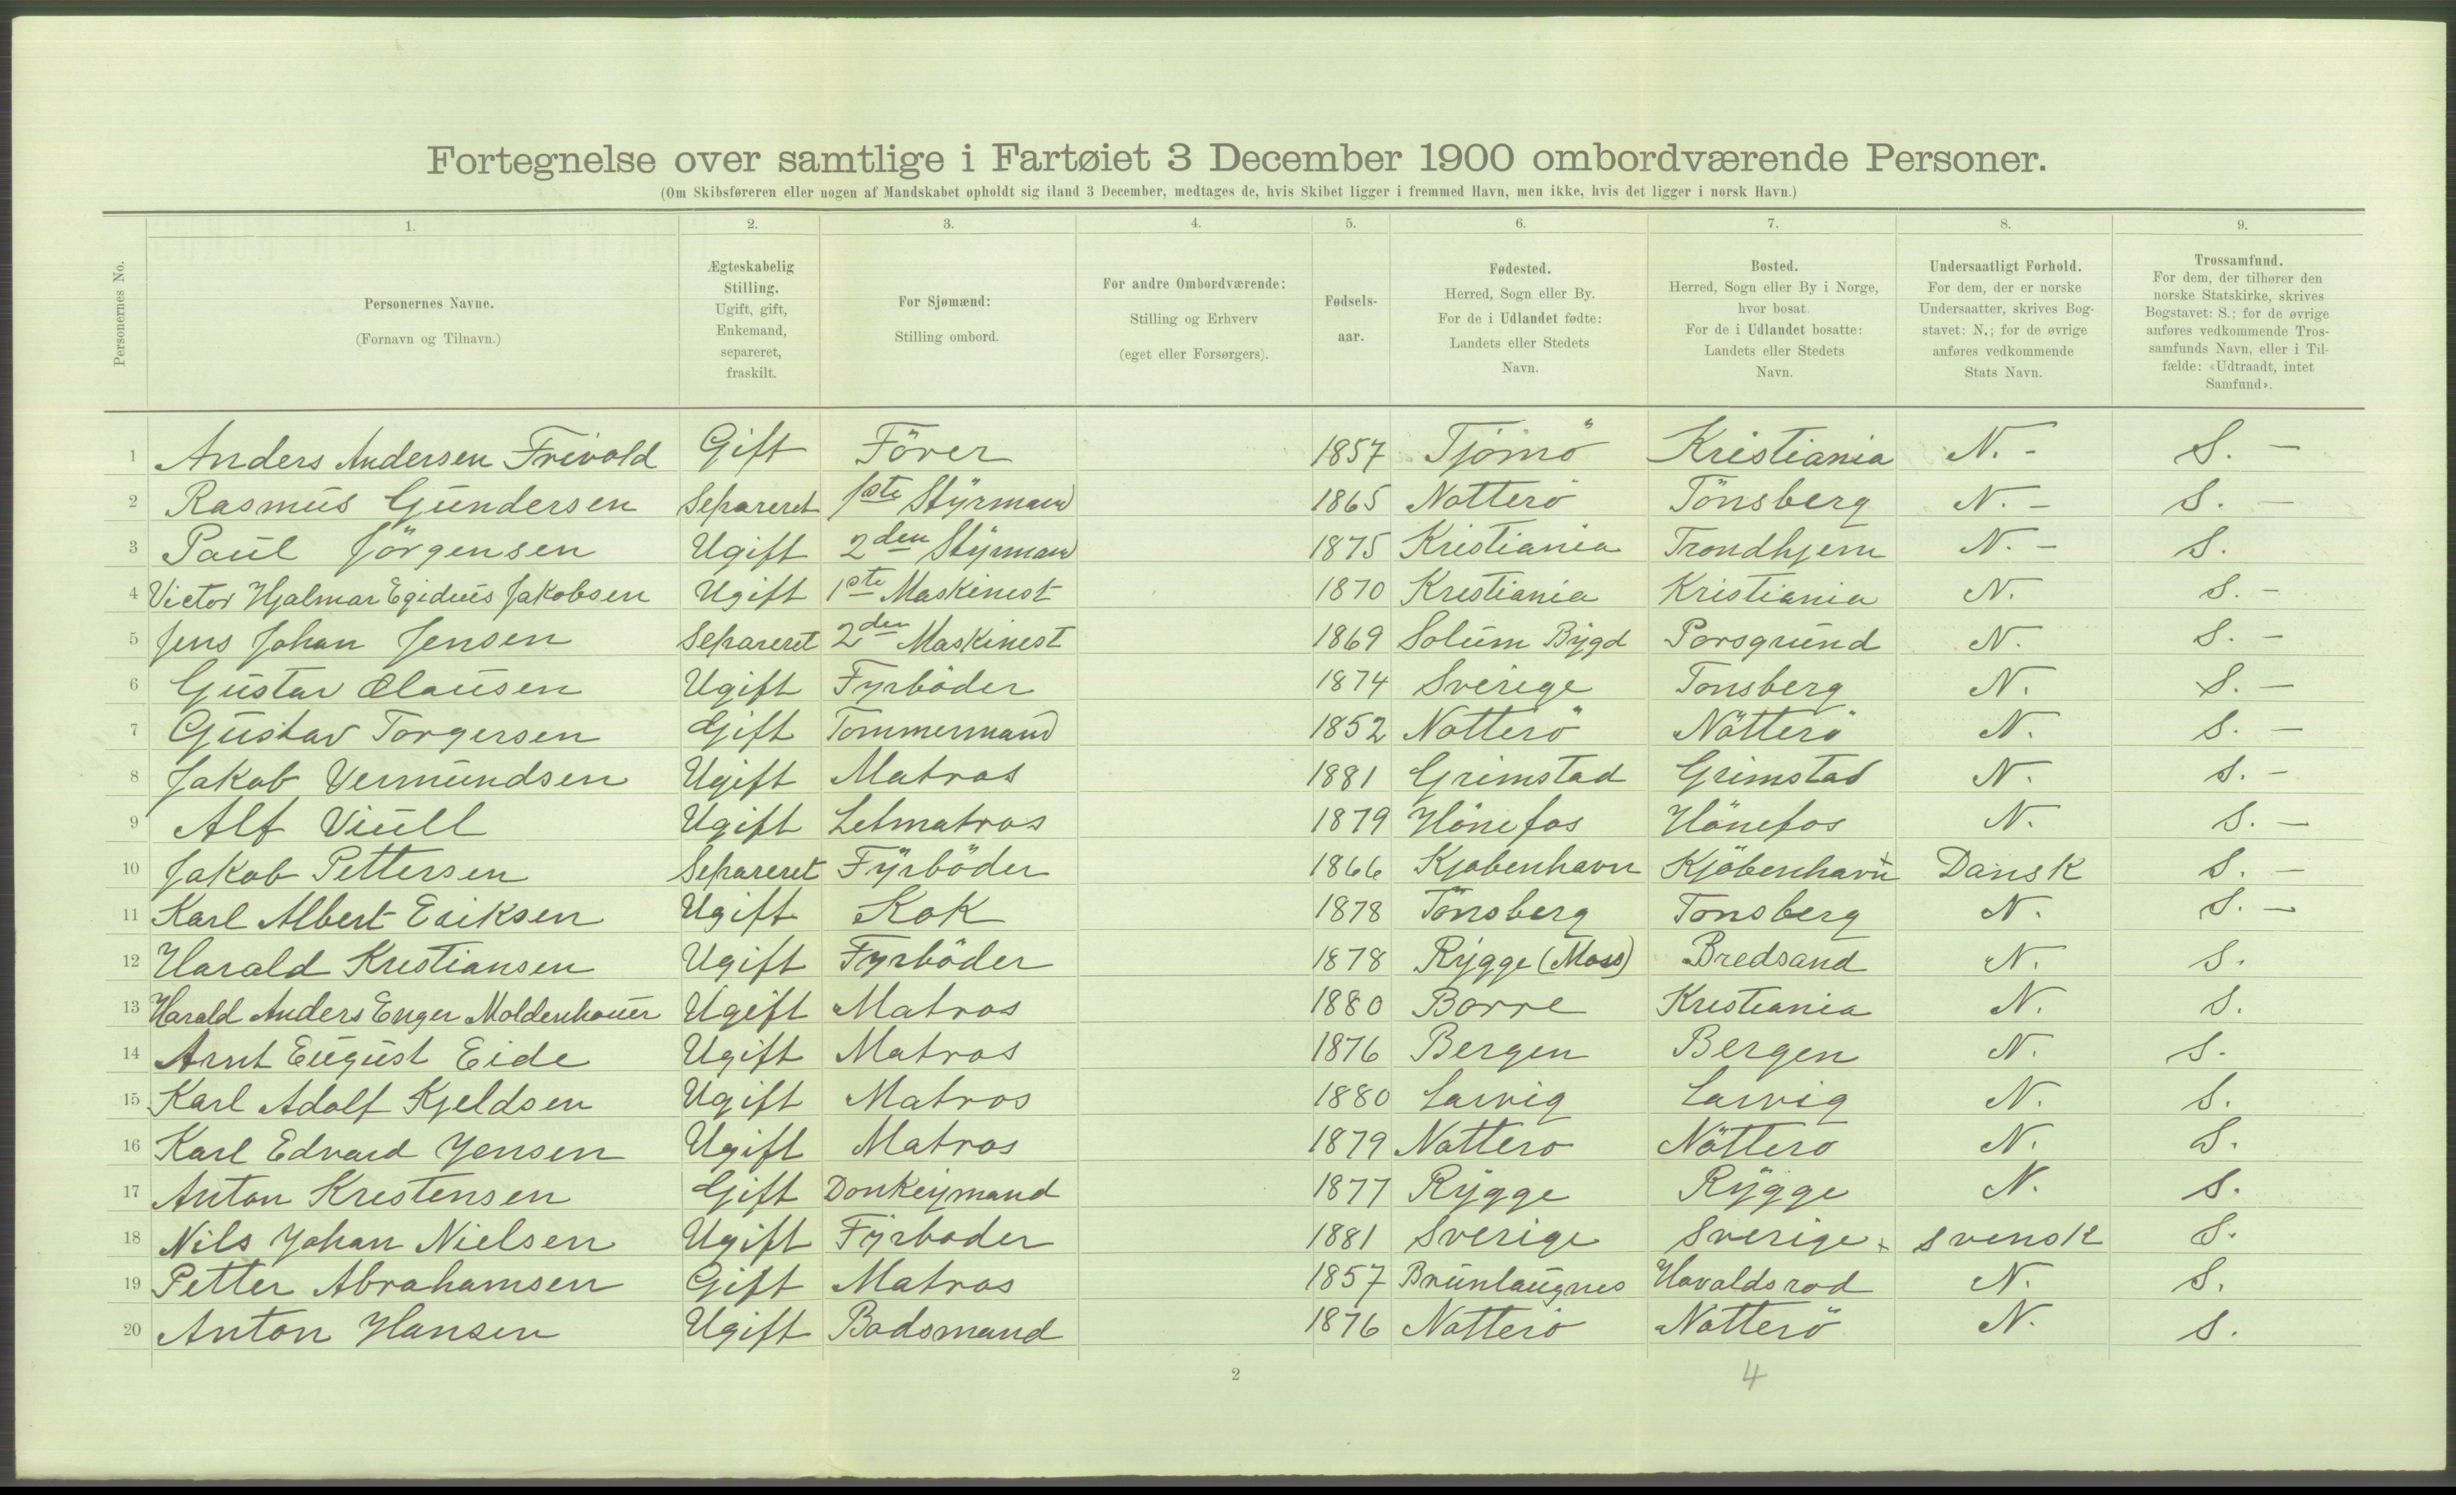 Fortegnelse over samtlige i Fartøiet 3 December 1900 ombordværende Personer.
(Om Skibsføreren eller nogen af Mandskabet opholdt sig iland 3 December, medtages de, hvis Skibet ligger i fremmed Havn, men ikke, hvis det ligger i norsk Havn.)
Personernes No.
1. 2. 3. 4. 5. 6. 7. 8. 9.
Personernes Navne.
(Fornavn og Tilnavn.)
Ægteskabelig
Stilling.
Ugift, gift,
Enkemand,
separeret,
fraskilt.
For Sjømænd:
Stilling ombord.
For andre Ombordværende:
Stilling og Erhverv
(eget eller Forsørgers).
Fødsels-
aar.
Fødested.
Herred, Sogn eller By.
For de i Udlandet fødte:
Landets eller Stedets
Navn.
Bosted.
Herred, Sogn eller By i Norge,
hvor bosat.
For de i Udlandet bosatte:
Landets eller Stedets
Navn.
Undersaatligt Forhold.
For dem, der er norske
Undersaatter, skrives Bog-
stavet: N.; for de øvrige
anføres vedkommende
Stats Navn.
Trossamfund.
For dem, der tilhører den
norske Statskirke, skrives
Bogstavet: S.; for de øvrige
anføres vedkommende Tros-
samfunds Navn, eller i Til-
fælde: «Udtraadt, intet
Samfund».
1 Anders Andersen Frivold Gift Förer 1857 Tjömö Kristiania N. - S. -
2 Rasmus Gundersen Separeret 1ste Styrmand 1865 Notterö Tönsberg N. - S. -
3 Paul Jörgensen Ugift 2den Styrmand 1875 Kristiania Trondhjem N. - S.
4 Victor Hjalmar Egidius Jakobsen Ugift 1ste Maskinest 1870 Kristiania Kristiania N. S. -
5 Jens Johan Jensen Separeret 2den Maskinest 1869 Solum Bygd Porsgrund N. S. -
6 Gustav Clausen Ugift Fyrböder 1874 Sverige Tonsberg N. S. -
7 Gustav Torgersen Gift Tommermand 1852 Notterö Nötterö N. S. -
8 Jakob Vermundsen Ugift Matros 1881 Grimstad Grimstad N. S. -
9 Alf Viull Ugift Letmatros 1879 Hönefos Hönefos N. S. -
10 Jakob Pettersen Separeret Fyrböder 1866 Kjobenhavn Kjöbenhavn + Dansk S. -
11 Karl Albert Eriksen Ugift Kok 1878 Tönsberg Tonsberg N. S. -
12 Harald Kristiansen Ugift Fyrböder 1878 Rygge (Moss) Bredsand N. S.
13 Harald Anders Enger Moldenhauer Ugift Matros 1880 Borre Kristiania N. S.
14 Arnt Eugust Eide Ugift Matros 1876 Bergen Bergen N. S.
15 Karl Adolf Kjeldsen Ugift Matros 1880 Larvig Larvig N. S.
16 Karl Edvard Jensen Ugift Matros 1879 Nottero Nöttero N. S.
17 Anton Krestensen Gift Donkeymand 1877 Rygge Rygge N. S.
18 Nils Johan Nielsen Ugift Fyrboder 1881 Sverige Sverige + svensk S.
19 Petter Abrahamsen Gift Matros 1857 Brunlaugnes Havaldsrod N. S.
20 Anton Hansen Ugift Bodsmand 1876 Notterö Notterö N. S.
2 4